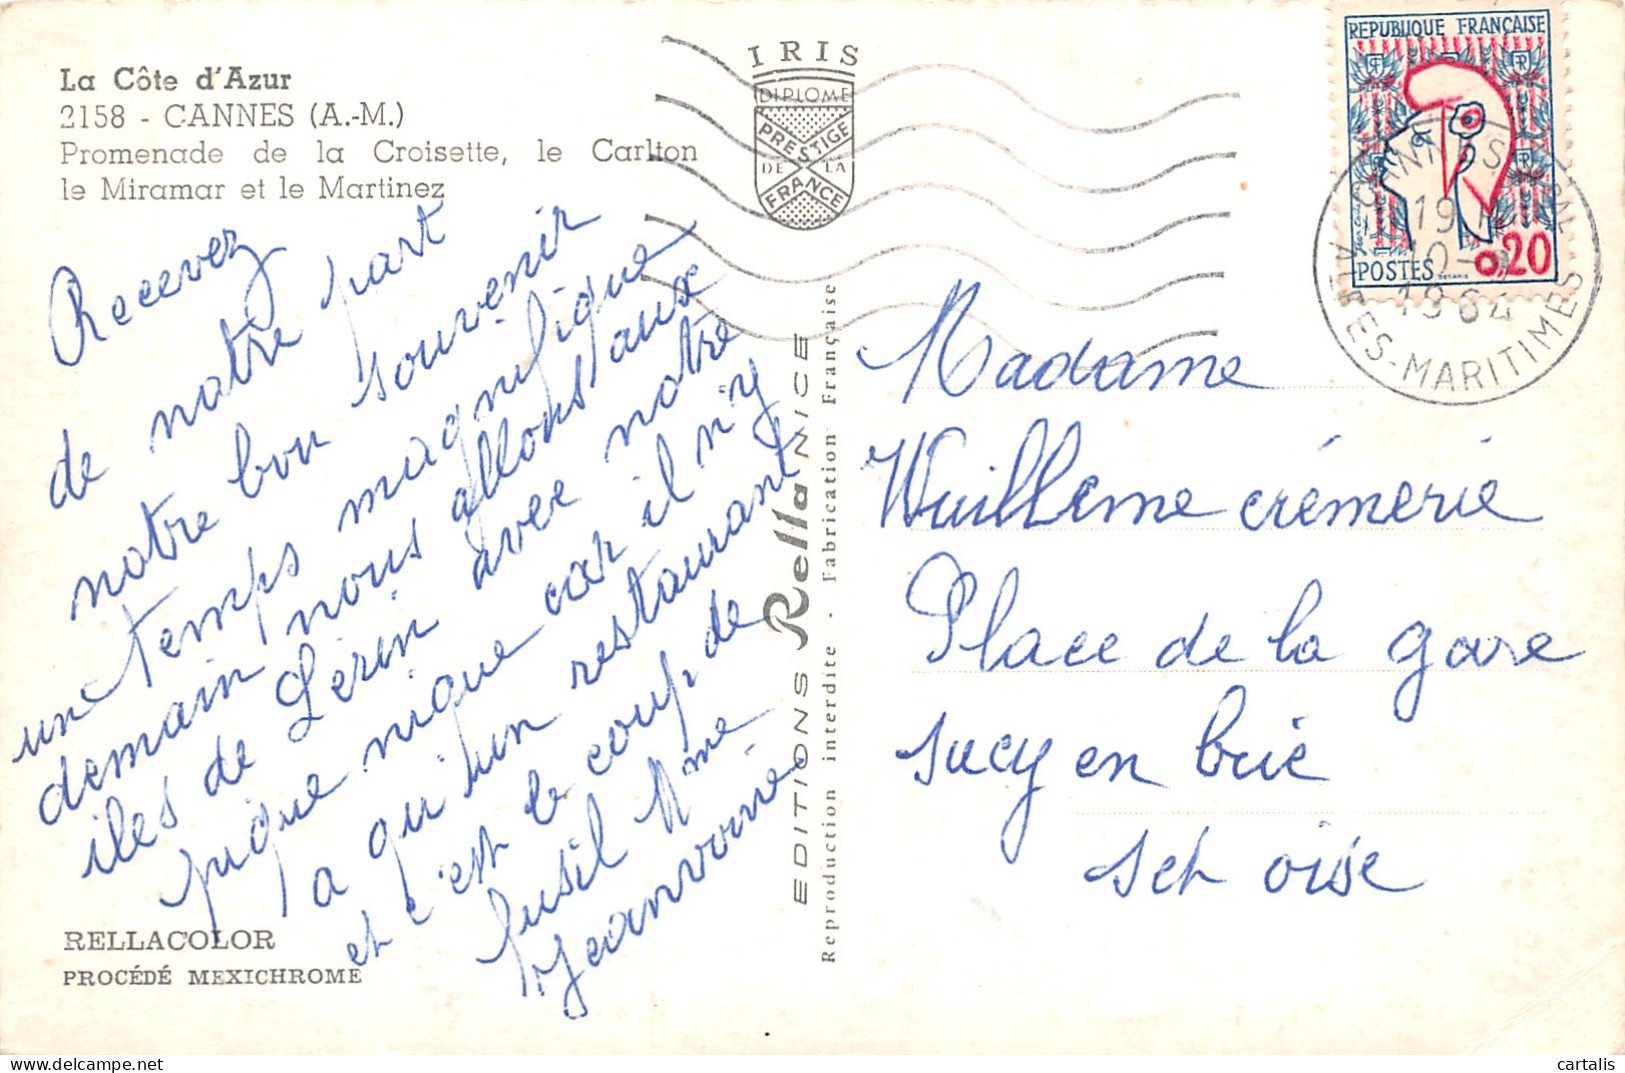 La Côte d'Azur
2158 - CANNES (A.-M.)
Promenade de la Croisette, le Carlton
le Miramar et le Martinez
IRIS
DIPLOME
PRESTIGE
DE LA
FRANCE
REPUBLIQUE FRANÇAISE
POSTES
0,20
19
10
1964
ALPES-MARITIMES
Recevez
de notre part
notre bon souvenir
un temps magnifique
demain nous allons aux
iles de Lerin avec notre
pique nique car il n'y
a qu'un restaurant
et c'est le coup de
fusil Mme
Jeanvoiné
Madame
Wuilleme crémerie
Place de la gare
sucy en brie
set oise
EDITIONS Rella NICE
Reproduction interdite - Fabrication Française
RELLACOLOR
PROCÉDÉ MEXICHROME
cartalis